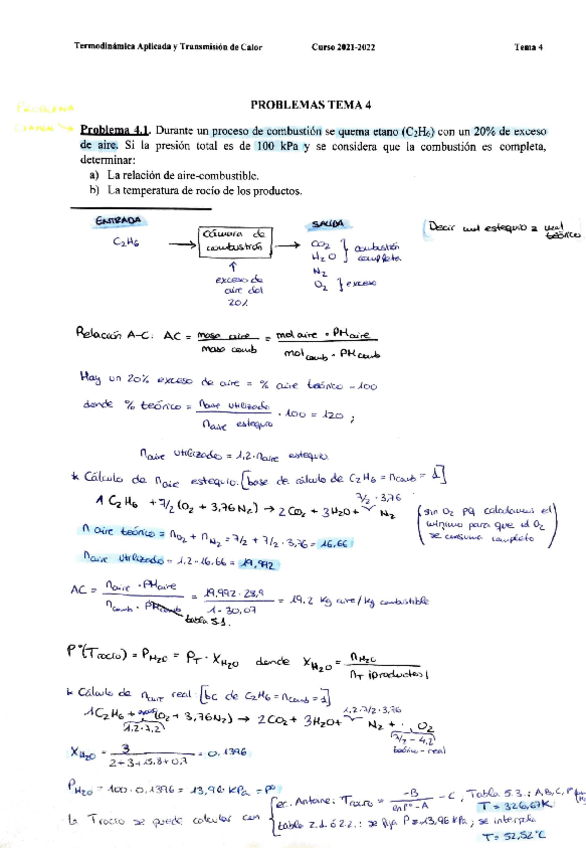 Termodinámica Aplicada y Transmisión de Calor Curso 2021-2022 Tema 4
PROBLEMAS TEMA 4
PROBLEMA
EXAMEN →
Problema 4.1. Durante un proceso de combustión se quema etano (C2H6) con un 20% de exceso
de aire. Si la presión total es de 100 kPa y se considera que la combustión es completa,
determinar:
a) La relación de aire-combustible.
b) La temperatura de rocío de los productos.
ENTRADA
C2H6 →
Cámara de
combustión
↑
exceso de
aire del
20%
→ SALIDA
CO2
H2O } combustión completa
N2
O2 } exceso
Decir mol estequio = mol
teórico
Relación A-C: AC = masa aire / masa comb = mol aire · PM aire / mol comb · PM comb
Hay un 20% exceso de aire = % aire teórico - 100
donde % teórico = n aire utilizado / n aire estequio · 100 = 120 ;
n aire utilizado = 1,2 · n aire estequio
* Cálculo de n aire estequio: [base de cálculo de C2H6 = n comb = 1]
7/2 · 3,76
1 C2H6 + 7/2 (O2 + 3,76 N2) → 2 CO2 + 3 H2O + N2
(sin O2 pq calculamos el
mínimo para que el O2
se consuma completo)
n aire teórico = nO2 + nN2 = 7/2 + 7/2 · 3,76 = 16,66
n aire utilizado = 1,2 · 16,66 = 19,992
AC = n aire · PM aire / n comb · PM comb = 19,992 · 28,9 / 1 · 30,07 = 19,2 kg aire / kg combustible
tabla 5.1.
P°(T rocío) = P H2O = P T · X H2O donde X H2O = n H2O / n T (productos)
* Cálculo de n aire real: [bc de C2H6 = n comb = 1]
1,2 · 7/2 · 3,76
1 C2H6 + (O2 + 3,76 N2) → 2 CO2 + 3 H2O + N2 + O2
1,2 · 7/2
7/2 - 4,2
teórico - real
X H2O = 3 / 2 + 3 + 15,8 + 0,7 = 0,1396
P H2O = 100 · 0,1396 = 13,96 kPa = P°
↳ T rocío se puede calcular con
ec. Antoine: T rocío = -B / ln P° - A - C , Tabla 5.3.: A, B, C, P
T = 326,67K
tabla 2.1. ó 2.2.: se fija P = 13,96 kPa ; se interpola
T = 52,52°C